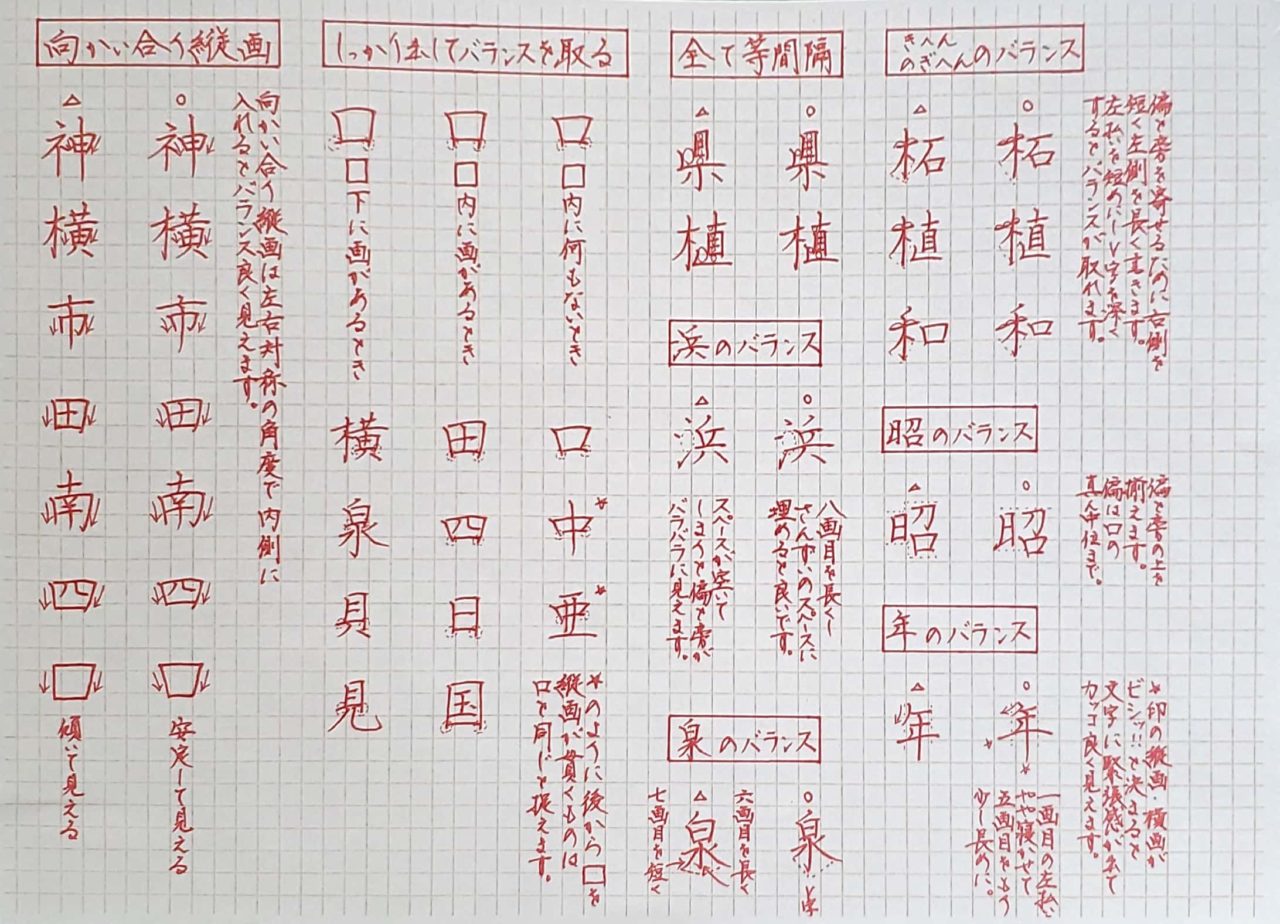 きへん
のぎへんのバランス
偏と旁を寄せるために右側を
短く左側を長く書きます。
左払を短めにしV字を深く
するとバランスが取れます。
○
柘
植
和
△
柘
植
和
昭のバランス
偏と旁の上を
揃えます。
偏は口の
真ん中位まで。
○
昭
△
昭
年のバランス
*印の縦画・横画が
ビシッ!!と決まると
文字に緊張感が出て
カッコ良く見えます。
○
年
*
*
一画目の左払
やや寝かせて
五画目をもう
少し長めに。
△
年
全て等間隔
○
県
植
△
県
植
浜のバランス
○
浜
八画目を長くし
さんずいのスペースに
埋めると良いです。
△
浜
スペースが空いて
しまうと偏と旁が
バラバラに見えます。
泉のバランス
○
泉
六画目を長く
△
泉
七画目を短く
しっかり出してバランスを取る
口
口内に何もないとき
口
中*
亜*
*のように後から口を
縦画が貫くものは
口と同じと捉えます。
口
口内に画があるとき
田
四
日
国
口
口下に画があるとき
横
泉
具
見
向かい合う縦画
向かい合う縦画は左右対称の角度で内側に
入れるとバランス良く見えます。
○
神
横
市
田
南
四
口
安定して見える
△
神
横
市
田
南
四
口
傾いて見える